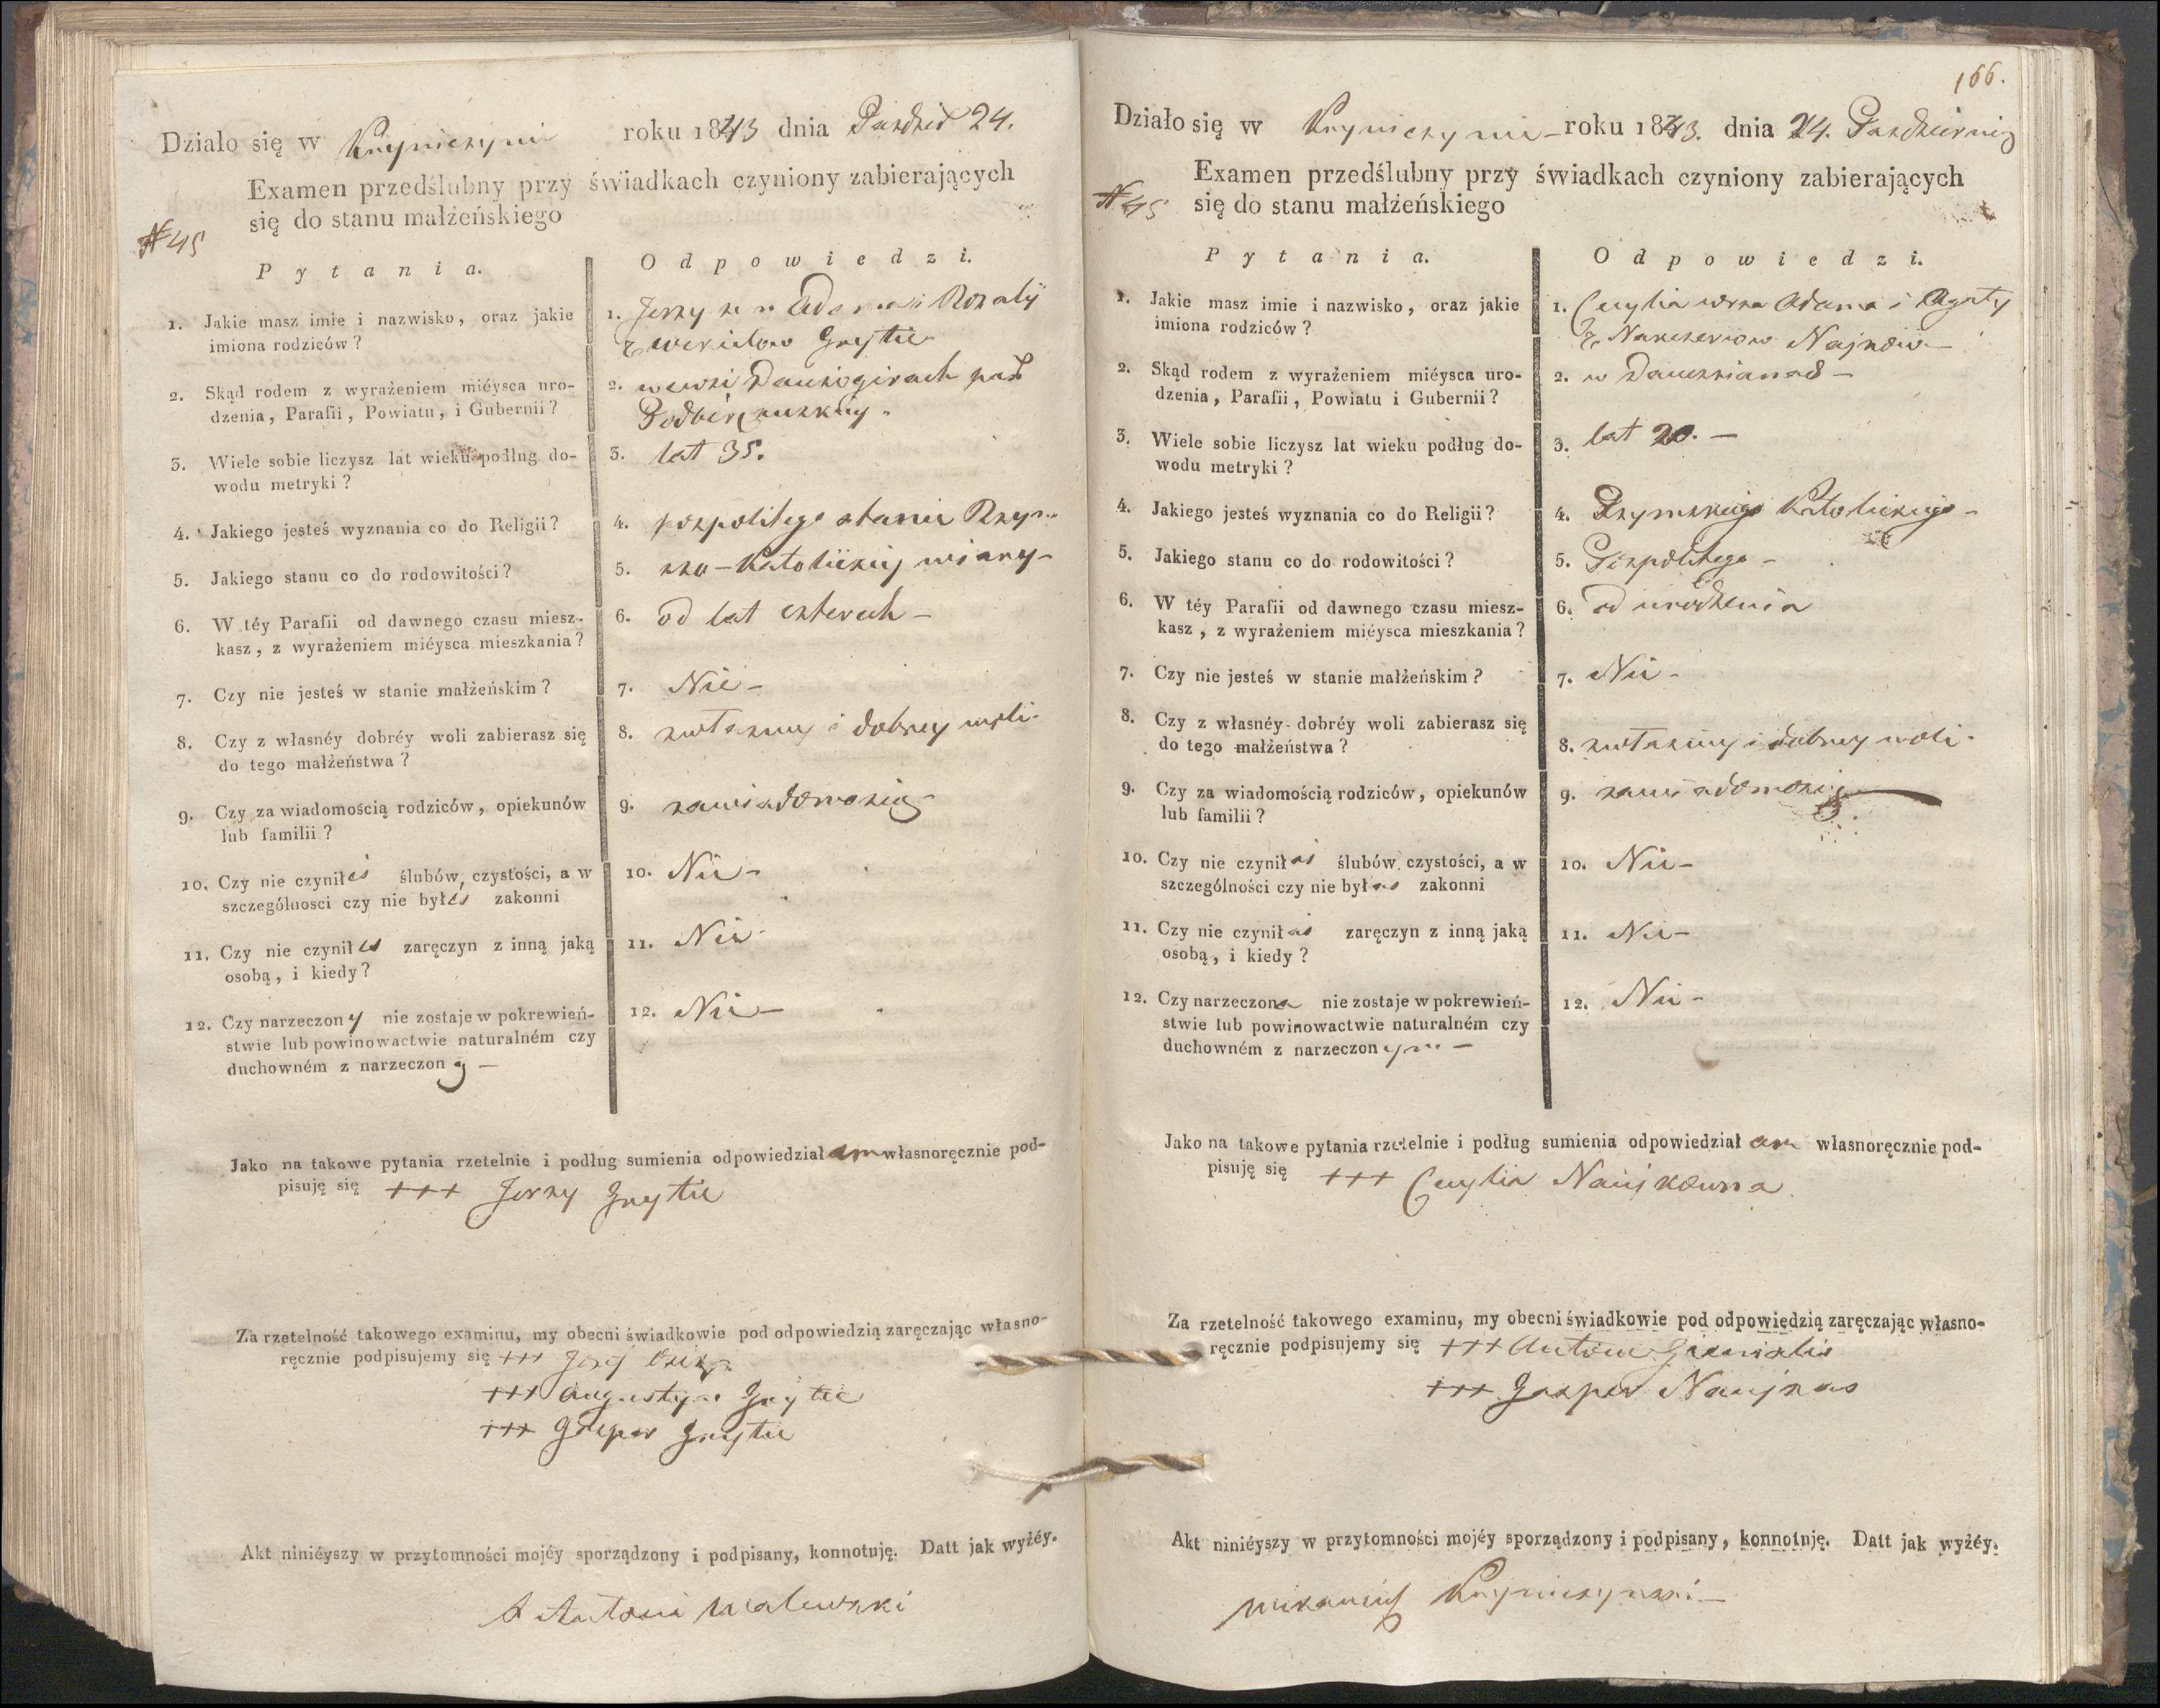 Działo się w Knyniczynie roku 1843 dnia Pazdzier 24.
Examen przedślubny przy świadkach czyniony zabierających
się do stanu małżeńskiego
N 45
Pytania.
Odpowiedzi.
1. Jakie masz imie i nazwisko, oraz jakie
imiona rodziców?
1. Jerzy syn Adama i Rozalij
Grytie
2. Skąd rodem z wyrażeniem miéysca uro-
dzenia, Parafii, Powiatu, i Gubernii?
2. wewsi Daukogirach
3. Wiele sobie liczysz lat wieku podług do-
wodu metryki?
3. lat 35.
4. Jakiego jesteś wyznania co do Religii?
4. pospolitego stanu Rzym
5. Jakiego stanu co do rodowitości?
5. sko-Katolickiey wiary-
6. W téy Parafii od dawnego czasu miesz-
kasz, z wyrażeniem miéysca mieszkania?
6. od lat czterech-
7. Czy nie jesteś w stanie małżeńskim?
7. Nie-
8. Czy z własnéy dobréy woli zabierasz się
do tego małżeństwa?
8. zwłasney i dobrey woli-
9. Czy za wiadomością rodziców, opiekunów
lub familii?
9. zawiadomoscią
10. Czy nie czyniłeś ślubów czystości, a w
szczególnosci czy nie byłeś zakonni
10. Nie-
11. Czy nie czyniłeś zaręczyn z inną jaką
osobą, i kiedy?
11. Nie-
12. Czy narzeczony nie zostaje w pokrewień-
stwie lub powinowactwie naturalném czy
duchowném z narzeczoną-
12. Nie-
Jako na takowe pytania rzetelnie i podług sumienia odpowiedziałem własnoręcznie pod-
pisuję się +++ Jerzy Grytie
Za rzetelność takowego examinu, my obecni świadkowie pod odpowiedzią zaręczając własno-
ręcznie podpisujemy się +++
+++ Augustyn Grytie
+++ Gasper Grytie
Akt niniéyszy w przytomności mojéy sporządzony i podpisany, konnotuję. Datt jak wyżéy.
X Antoni Malewski
166.
Działo się w Knyniczynie- roku 1843. dnia 24. Pazdziernig
Examen przedślubny przy świadkach czyniony zabierających
się do stanu małżeńskiego
N 45
Pytania.
Odpowiedzi.
1. Jakie masz imie i nazwisko, oraz jakie
imiona rodziców?
1. Cecylia Adama i Agaty
Najkow-
2. Skąd rodem z wyrażeniem miéysca uro-
dzenia, Parafii, Powiatu i Gubernii?
2. w
3. Wiele sobie liczysz lat wieku podług do-
wodu metryki?
3. lat 20.-
4. Jakiego jesteś wyznania co do Religii?
4. Rzymskiego Katolickiego-
5. Jakiego stanu co do rodowitości?
5. Pospolitego-
6. W téy Parafii od dawnego czasu miesz-
kasz, z wyrażeniem miéysca mieszkania?
6. od urodzenia
7. Czy nie jesteś w stanie małżeńskim?
7. Nie-
8. Czy z własnéy dobréy woli zabierasz się
do tego małżeństwa?
8. zwłasney i dobrey woli-
9. Czy za wiadomością rodziców, opiekunów
lub familii?
9. zawiadomoscią
10. Czy nie czyniłaś ślubów czystości, a w
szczególności czy nie byłaś zakonni
10. Nie-
11. Czy nie czyniłaś zaręczyn z inną jaką
osobą, i kiedy?
11. Nie-
12. Czy narzeczona nie zostaje w pokrewień-
stwie lub powinowactwie naturalném czy
duchowném z narzeczonym-
12. Nie-
Jako na takowe pytania rzetelnie i podług sumienia odpowiedziałam własnoręcznie pod-
pisuję się +++ Cecylia Naujkowna
Za rzetelność takowego examinu, my obecni świadkowie pod odpowiedzią zaręczając własno-
ręcznie podpisujemy się +++ Antoni
+++ Gasper Naujkas
Akt niniéyszy w przytomności mojéy sporządzony i podpisany, konnotuję. Datt jak wyżéy.
Wikariusz Knyniczynski-